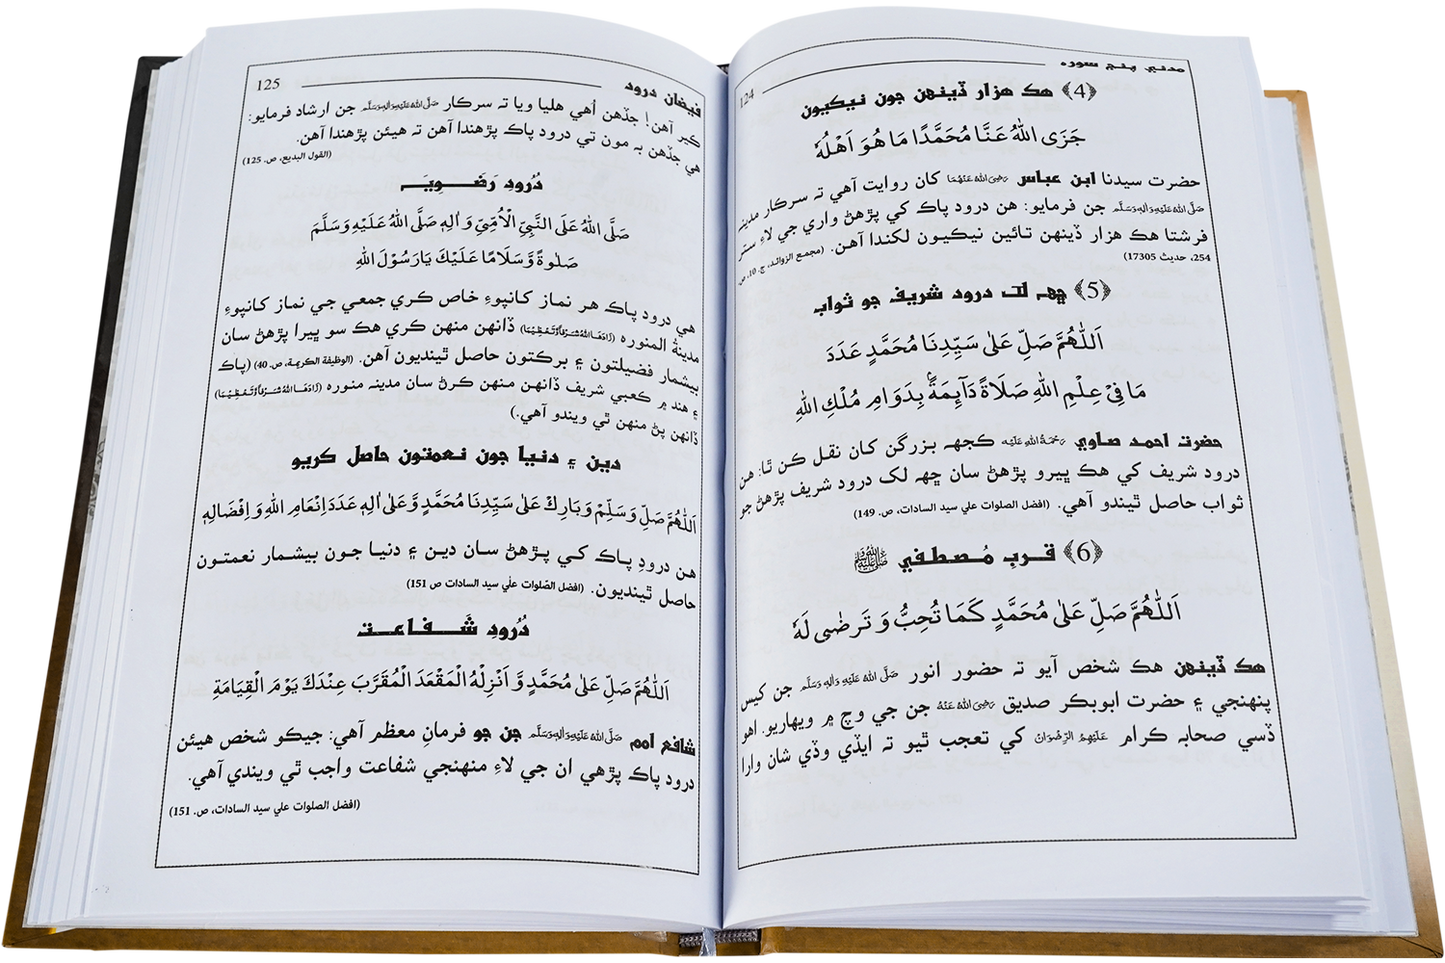 مدني پنج سوره
124
﴿4﴾ هڪ هزار ڏينهن جون نيڪيون
جَزَى اللّٰهُ عَنَّا مُحَمَّدًا مَا هُوَ اَهْلُهٗ
حضرت سيدنا ابن عباس رَضِیَ اللّٰهُ عَنْهُمَا کان روايت آهي ته سرڪار مدينه
صَلَّی اللّٰهُ عَلَیْهِ وَاٰلِهٖ وَسَلَّم جن فرمايو: هن درود پاڪ کي پڙهڻ واري جي لاءِ ستر
فرشتا هڪ هزار ڏينهن تائين نيڪيون لکندا آهن. (مجمع الزوائد، ج. 10، ص
254، حديث 17305)
﴿5﴾ ڇهه لک درود شريف جو ثواب
اَللّٰهُمَّ صَلِّ عَلٰى سَيِّدِنَا مُحَمَّدٍ عَدَدَ
مَا فِيْ عِلْمِ اللّٰهِ صَلَاةً دَآئِمَةًۢ بِدَوَامِ مُلْكِ اللّٰهِ
حضرت احمد صاوي رَحْمَةُ اللّٰهِ عَلَیْه ڪجهه بزرگن کان نقل ڪن ٿا: هن
درود شريف کي هڪ ڀيرو پڙهڻ سان ڇهه لک درود شريف پڙهڻ جو
ثواب حاصل ٿيندو آهي. (افضل الصلوات علي سيد السادات، ص. 149)
﴿6﴾ قربِ مُصطفيٰ ﷺ
اَللّٰهُمَّ صَلِّ عَلٰى مُحَمَّدٍ كَمَا تُحِبُّ وَ تَرضٰى لَهٗ
هڪ ڏينهن هڪ شخص آيو ته حضور انور صَلَّی اللّٰهُ عَلَیْهِ وَاٰلِهٖ وَسَلَّم جن کيس
پنهنجي ۽ حضرت ابوبڪر صديق رَضِیَ اللّٰهُ عَنْهُ جن جي وچ ۾ ويهاريو. اهو
ڏسي صحابه ڪرام عَلَیْهِمُ الرِّضْوَان کي تعجب ٿيو ته ايڏي وڏي شان وارا
فيضان درود
125
ڪير آهن! جڏهن اُهي هليا ويا ته سرڪار صَلَّی اللّٰهُ عَلَیْهِ وَاٰلِهٖ وَسَلَّم جن ارشاد فرمايو:
هي جڏهن به مون تي درود پاڪ پڙهندا آهن ته هيئن پڙهندا آهن.
(القول البديع، ص. 125)
دُرُودِ رَضَوِيَہ
صَلَّى اللّٰهُ عَلَى النَّبِيِّ الْاُمِّيِّ وَ اٰلِهٖ صَلَّى اللّٰهُ عَلَيْهِ وَسَلَّمَ
صَلٰوةً وَّسَلَامًا عَلَيْكَ يَا رَسُوْلَ اللّٰهِ
هي درود پاڪ هر نماز کانپوءِ خاص ڪري جمعي جي نماز کانپوءِ
مدينةُ المنوره (زَادَهَا اللّٰهُ شَرَفًا وَّتَعْظِيْمًا) ڏانهن منهن ڪري هڪ سو ڀيرا پڙهڻ سان
بيشمار فضيلتون ۽ برڪتون حاصل ٿينديون آهن. (الوظيفة الكريمة، ص. 40) (پاڪ
۽ هند ۾ ڪعبي شريف ڏانهن منهن ڪرڻ سان مدينه منوره (زَادَهَا اللّٰهُ شَرَفًا وَّتَعْظِيْمًا)
ڏانهن پڻ منهن ٿي ويندو آهي.)
دين ۽ دنيا جون نعمتون حاصل ڪريو
اَللّٰهُمَّ صَلِّ وَسَلِّمْ وَبَارِكْ عَلٰى سَيِّدِنَا مُحَمَّدٍ وَّعَلٰى اٰلِهٖ عَدَدَ اِنْعَامِ اللّٰهِ وَ اِفْضَالِهٖ
هن درود پاڪ کي پڙهڻ سان دين ۽ دنيا جون بيشمار نعمتون
حاصل ٿينديون. (افضل الصّلوات علٰي سيد السادات ص 151)
دُرُودِ شَفاعت
اَللّٰهُمَّ صَلِّ عَلٰى مُحَمَّدٍ وَّ اَنْزِلْهُ الْمَقْعَدَ الْمُقَرَّبَ عِنْدَكَ يَوْمَ الْقِيَامَةِ
شافع امم صَلَّی اللّٰهُ عَلَیْهِ وَاٰلِهٖ وَسَلَّم جن جو فرمانِ معظم آهي: جيڪو شخص هيئن
درود پاڪ پڙهي ان جي لاءِ منهنجي شفاعت واجب ٿي ويندي آهي.
(افضل الصلوات علي سيد السادات، ص. 151)